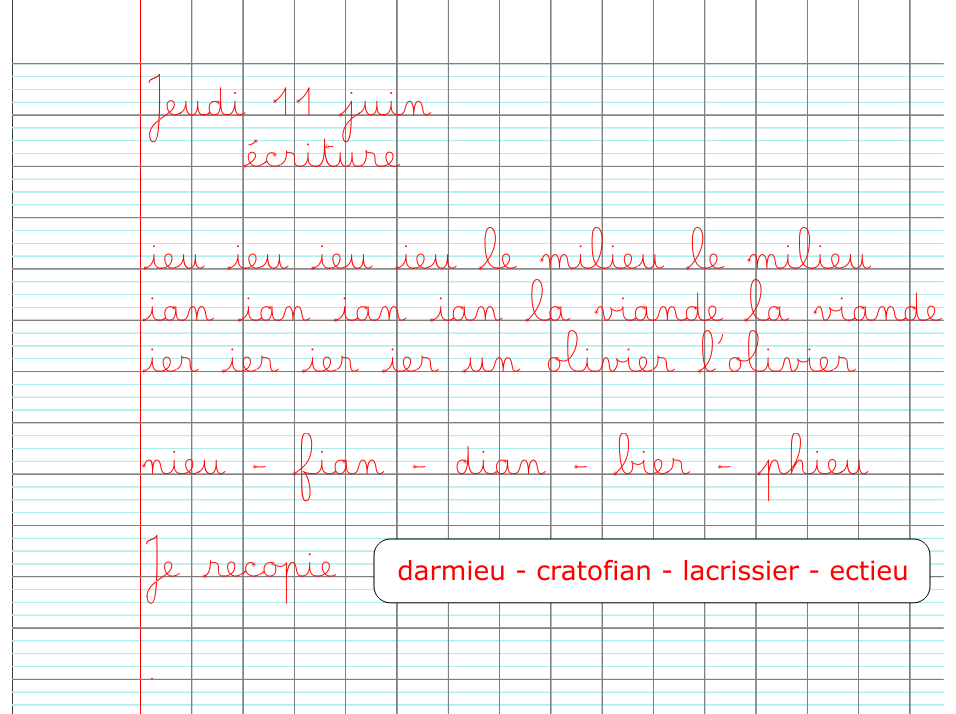 Jeudi 11 juin
écriture
ieu ieu ieu ieu le milieu le milieu
ian ian ian ian la viande la viande
ier ier ier ier un olivier l'olivier
nieu - fian - dian - bier - phieu
Je recopie darmieu - cratofian - lacrissier - ectieu
.